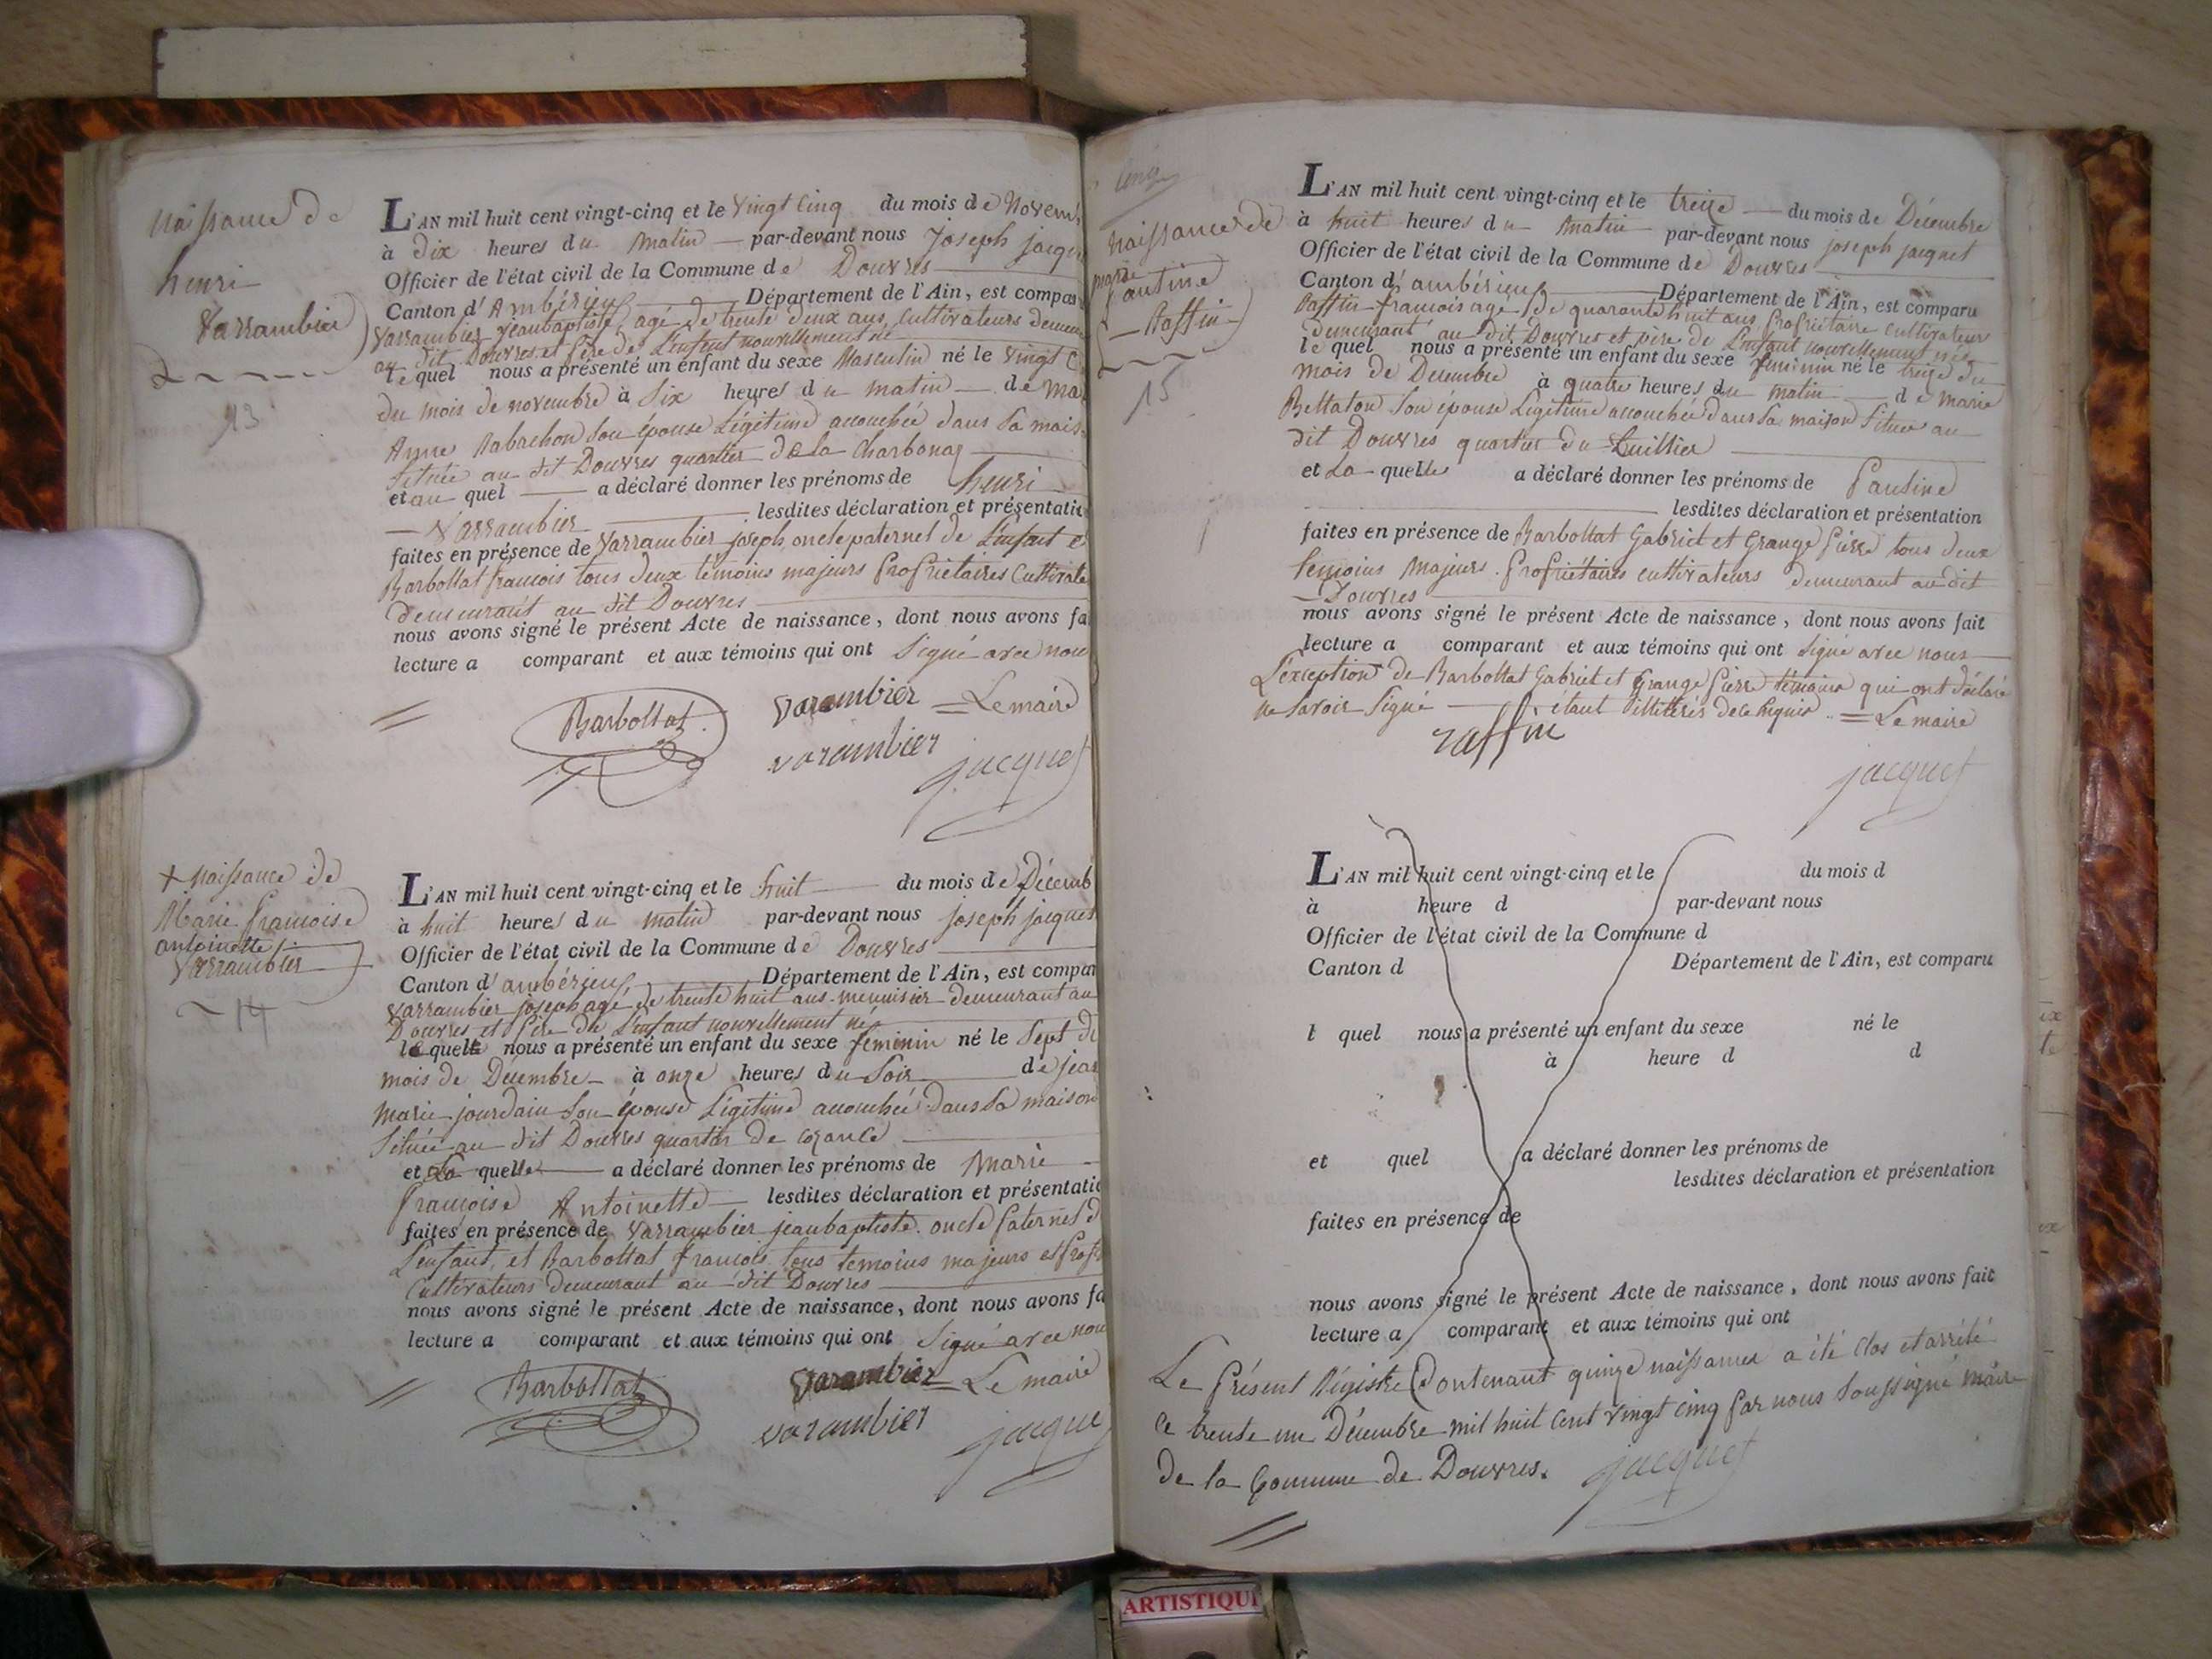 naissance de
henri
Varrambier
13
L'AN mil huit cent vingt-cinq et le vingt cinq du mois de Novem
à dix heures du matin par-devant nous Joseph jacqu
Officier de l'état civil de la Commune de Douvres
Canton d'Ambérieux Département de l'Ain, est compar
Varrambier jeanbaptiste agé de trente deux ans, cultivateurs demeur
au dit Douvres et père de L'enfant nouvellement né
le quel nous a présenté un enfant du sexe Masculin né le vingt c
du mois de novembre à Six heures du matin de Ma
Anne Rabachon son épouse Légitime accouchée dans Sa mais
Située au dit Douvres quartier de la Charbona
et au quel a déclaré donner les prénoms de henri
Varrambier lesdites déclaration et présentatio
faites en présence de Varrambier joseph, oncle paternel de L'enfant e
Barbollat francois tous deux témoins majeurs Propriétaires Cultivate
demeurant au dit Douvres
nous avons signé le présent Acte de naissance, dont nous avons fa
lecture a comparant et aux témoins qui ont Signé avec nou
Barbollat varambier = Le maire
varambier jacquet
+ naissance de
Marie francoise
antoinette
Varrambier
14
L'AN mil huit cent vingt-cinq et le huit du mois de Décemb
à huit heures du matin par-devant nous joseph jacquet
Officier de l'état civil de la Commune de Douvres
Canton d'ambérieux Département de l'Ain, est compar
Varrambier joseph agé de trente huit ans menuisier demeurant au
Douvres et Père de L'enfant nouvellement né
le quel nous a présenté un enfant du sexe féminin né le Sept de
mois de Décembre à onze heures du Soir de jean
Marie jourdain Son épouse Légitime accouchée dans Sa maison
Située au dit Douvres quartier de
et La quelle a déclaré donner les prénoms de Marie
françoise Antoinette lesdites déclaration et présentatio
faites en présence de Varrambier jeanbaptiste oncle paternel d
L'enfant, et Barbollat francois tous temoins majeurs et Prop
Cultivateurs demeurant au dit Douvres
nous avons signé le présent Acte de naissance, dont nous avons fa
lecture a comparant et aux témoins qui ont Signé avec nou
Barbollat varambier = Le maire
varambier jacque
naissance de
marie
Pauline
Raffin
15
L'AN mil huit cent vingt-cinq et le treize du mois de Décembre
à huit heures du matin par-devant nous joseph jacquet
Officier de l'état civil de la Commune de Douvres
Canton d'ambérieux Département de l'Ain, est comparu
Raffin francois agé de quarante huit ans, Propriétaire cultivateur
demeurant au dit Douvres et père de L'enfant nouvellement née
le quel nous a présenté un enfant du sexe féminin né le treize du
mois de Decembre à quatre heures du matin de Marie
Bettaton Son épouse Légitime accouchée dans Sa maison Située au
dit Douvres quartier du
et La quelle a déclaré donner les prénoms de Pauline
lesdites déclaration et présentation
faites en présence de Barbollat Gabriel et Grange Pierre tous deux
temoins Majeurs Propriétaires cultivateurs demeurant au dit
Douvres
nous avons signé le présent Acte de naissance, dont nous avons fait
lecture a comparant et aux témoins qui ont Signé avec nous
L'exception de Barbollat Gabriel et Grange Pierre témoins qui ont déclaré
ne Savoir Signé étant illitérés de ce requis = Le maire
raffin
jacquet
L'AN mil huit cent vingt-cinq et le du mois d
à heure d par-devant nous
Officier de l'état civil de la Commune d
Canton d Département de l'Ain, est comparu
l quel nous a présenté un enfant du sexe né le
à heure d d
et quel a déclaré donner les prénoms de
lesdites déclaration et présentation
faites en présence de
nous avons signé le présent Acte de naissance, dont nous avons fait
lecture a comparant et aux témoins qui ont
Le Présent Régistre Contenant quinze naissances a été Clos et arrêté
le trente un Décembre mil huit Cent vingt cinq Par nous Soussigné maire
de la Commune de Douvres.
jacquet
ARTISTIQU